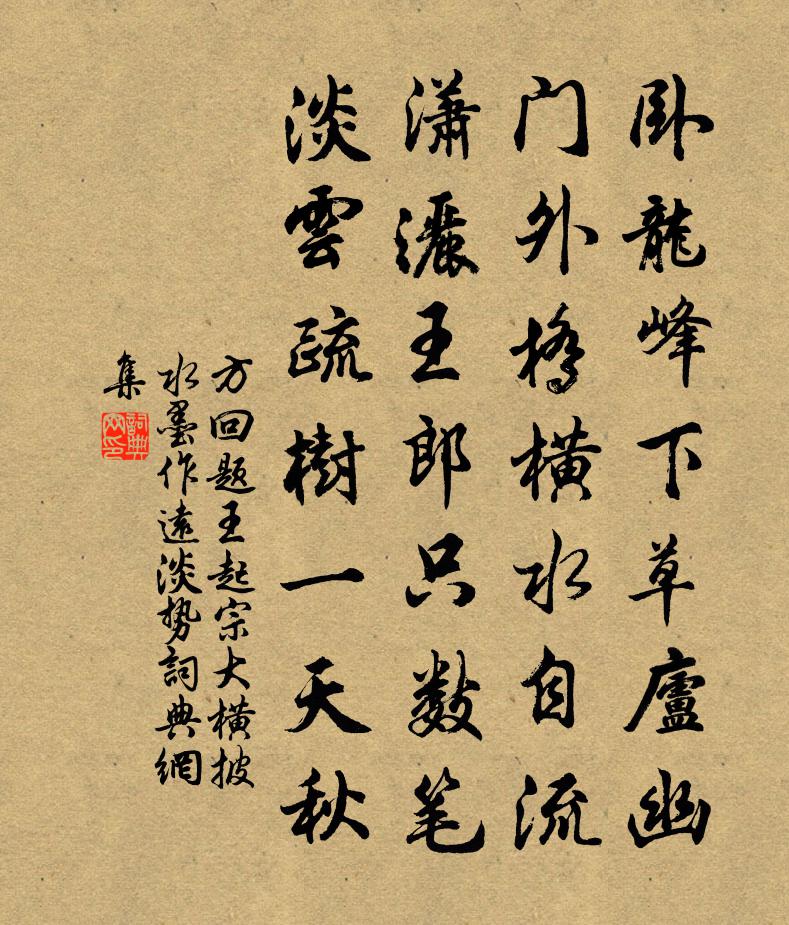 卧龍峰下草廬幽
门外橋橫水自流
瀟灑王郎只数笔
淡雲疏樹一天秋
方回题王起宗大橫披
水墨作遠淡势詞典網
集
詞典
网印